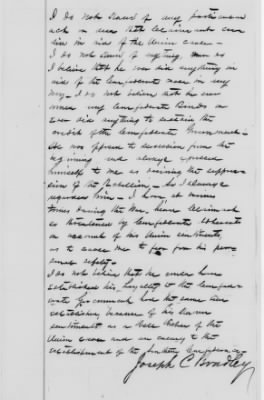 I do not know of any particular
act or use that Claimant ever
did in aid of the Union cause.
I do not know of anything nor do
I believe that he ever did anything in
aid of the Confederate cause in any
way. I do not believe that he ever
any Confederate Bonds or
ever did anything to sustain the
credit of the Confederate Government.
He was opposed to secession from the
beginning and always
himself to me as desiring the suppres-
sion of the Rebellion. So I always
regarded him. I know at various
times during the War, Claimant
so threatened by Confederate
on account of his Union sentiments,
as to cause me to fear for his per-
sonal safety.
I do not believe that he could have
established his loyalty to the Confede-
rate Government had the same been
established, because of his known
sentiments as a well wisher of the
Union cause and an enemy to the
establishment of the Southern Confederacy.
Joseph C Bradley